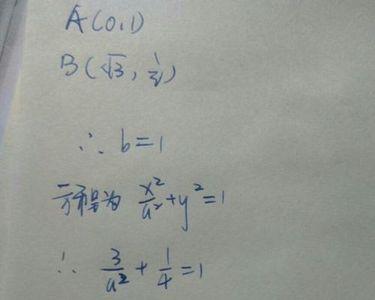 A(0,1)
B(√3,1/2)
∴ b=1
方程为 x²/a²+y²=1
∴ 3/a²+1/4=1